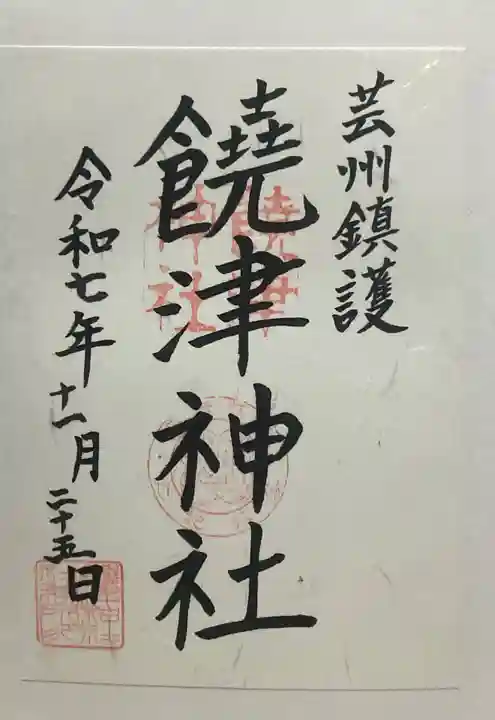 芸州鎮護
饒津神社
令和七年十一月二十五日
饒津
神社